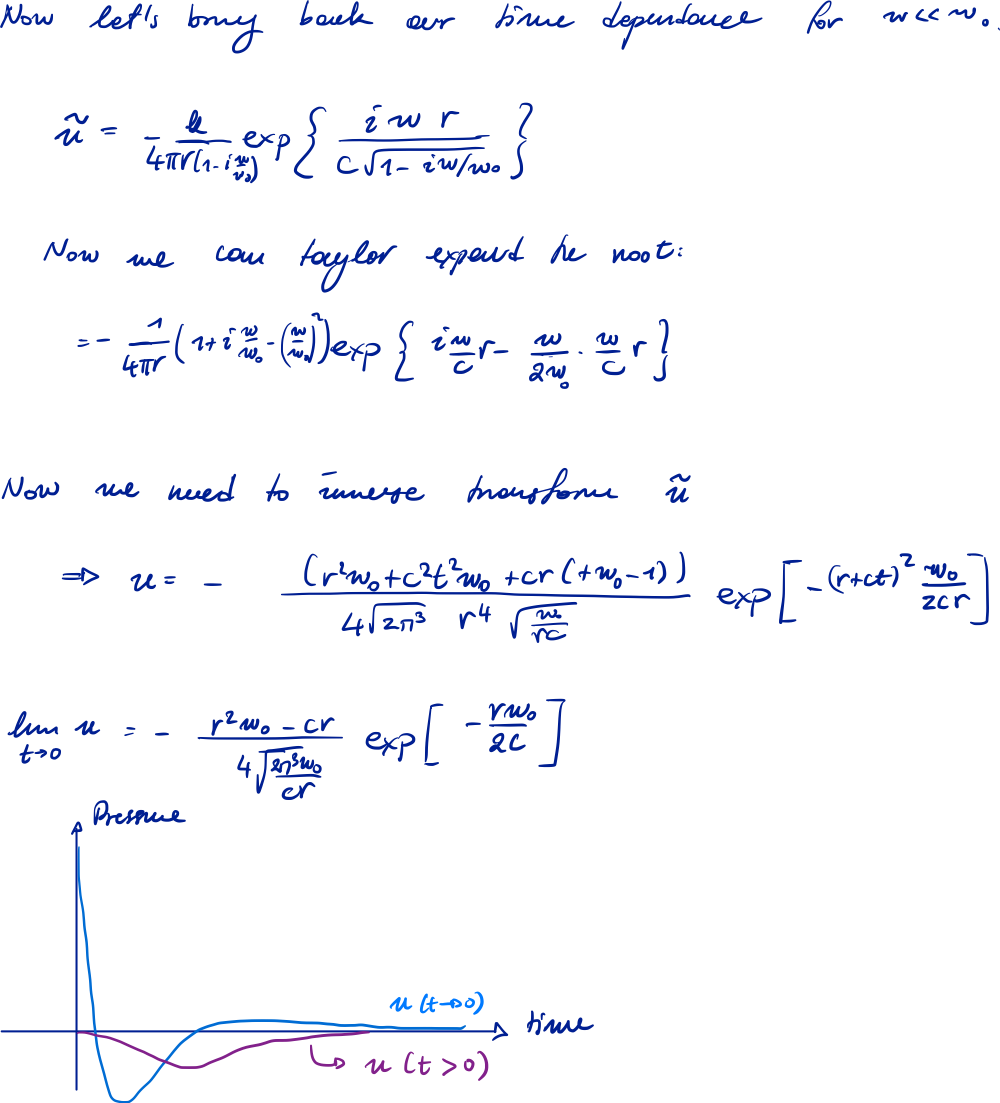 Now let's bring back our time dependance for w<<w₀.
ũ = - k/(4πr(1-i w/w₀)) exp{ i w r / (c√(1 - iw/w₀)) }
Now we can taylor expand the root:
= - 1/(4πr) (1 + i w/w₀ - (w/w₀)²) exp{ i w/c r - w/(2w₀) · w/c r }
Now we need to inverse transform ũ
⇒ u = - (r²w₀ + c²t²w₀ + cr(+w₀-1)) / (4√(2π³) r⁴ √(w₀/(rc))) exp[ -(r+ct)² w₀/(2cr) ]
lim t→0 u = - (r²w₀ - cr) / (4√(2π³w₀/(cr))) exp[ - rw₀/(2c) ]
Pressure
u(t→0)
time
u(t>0)